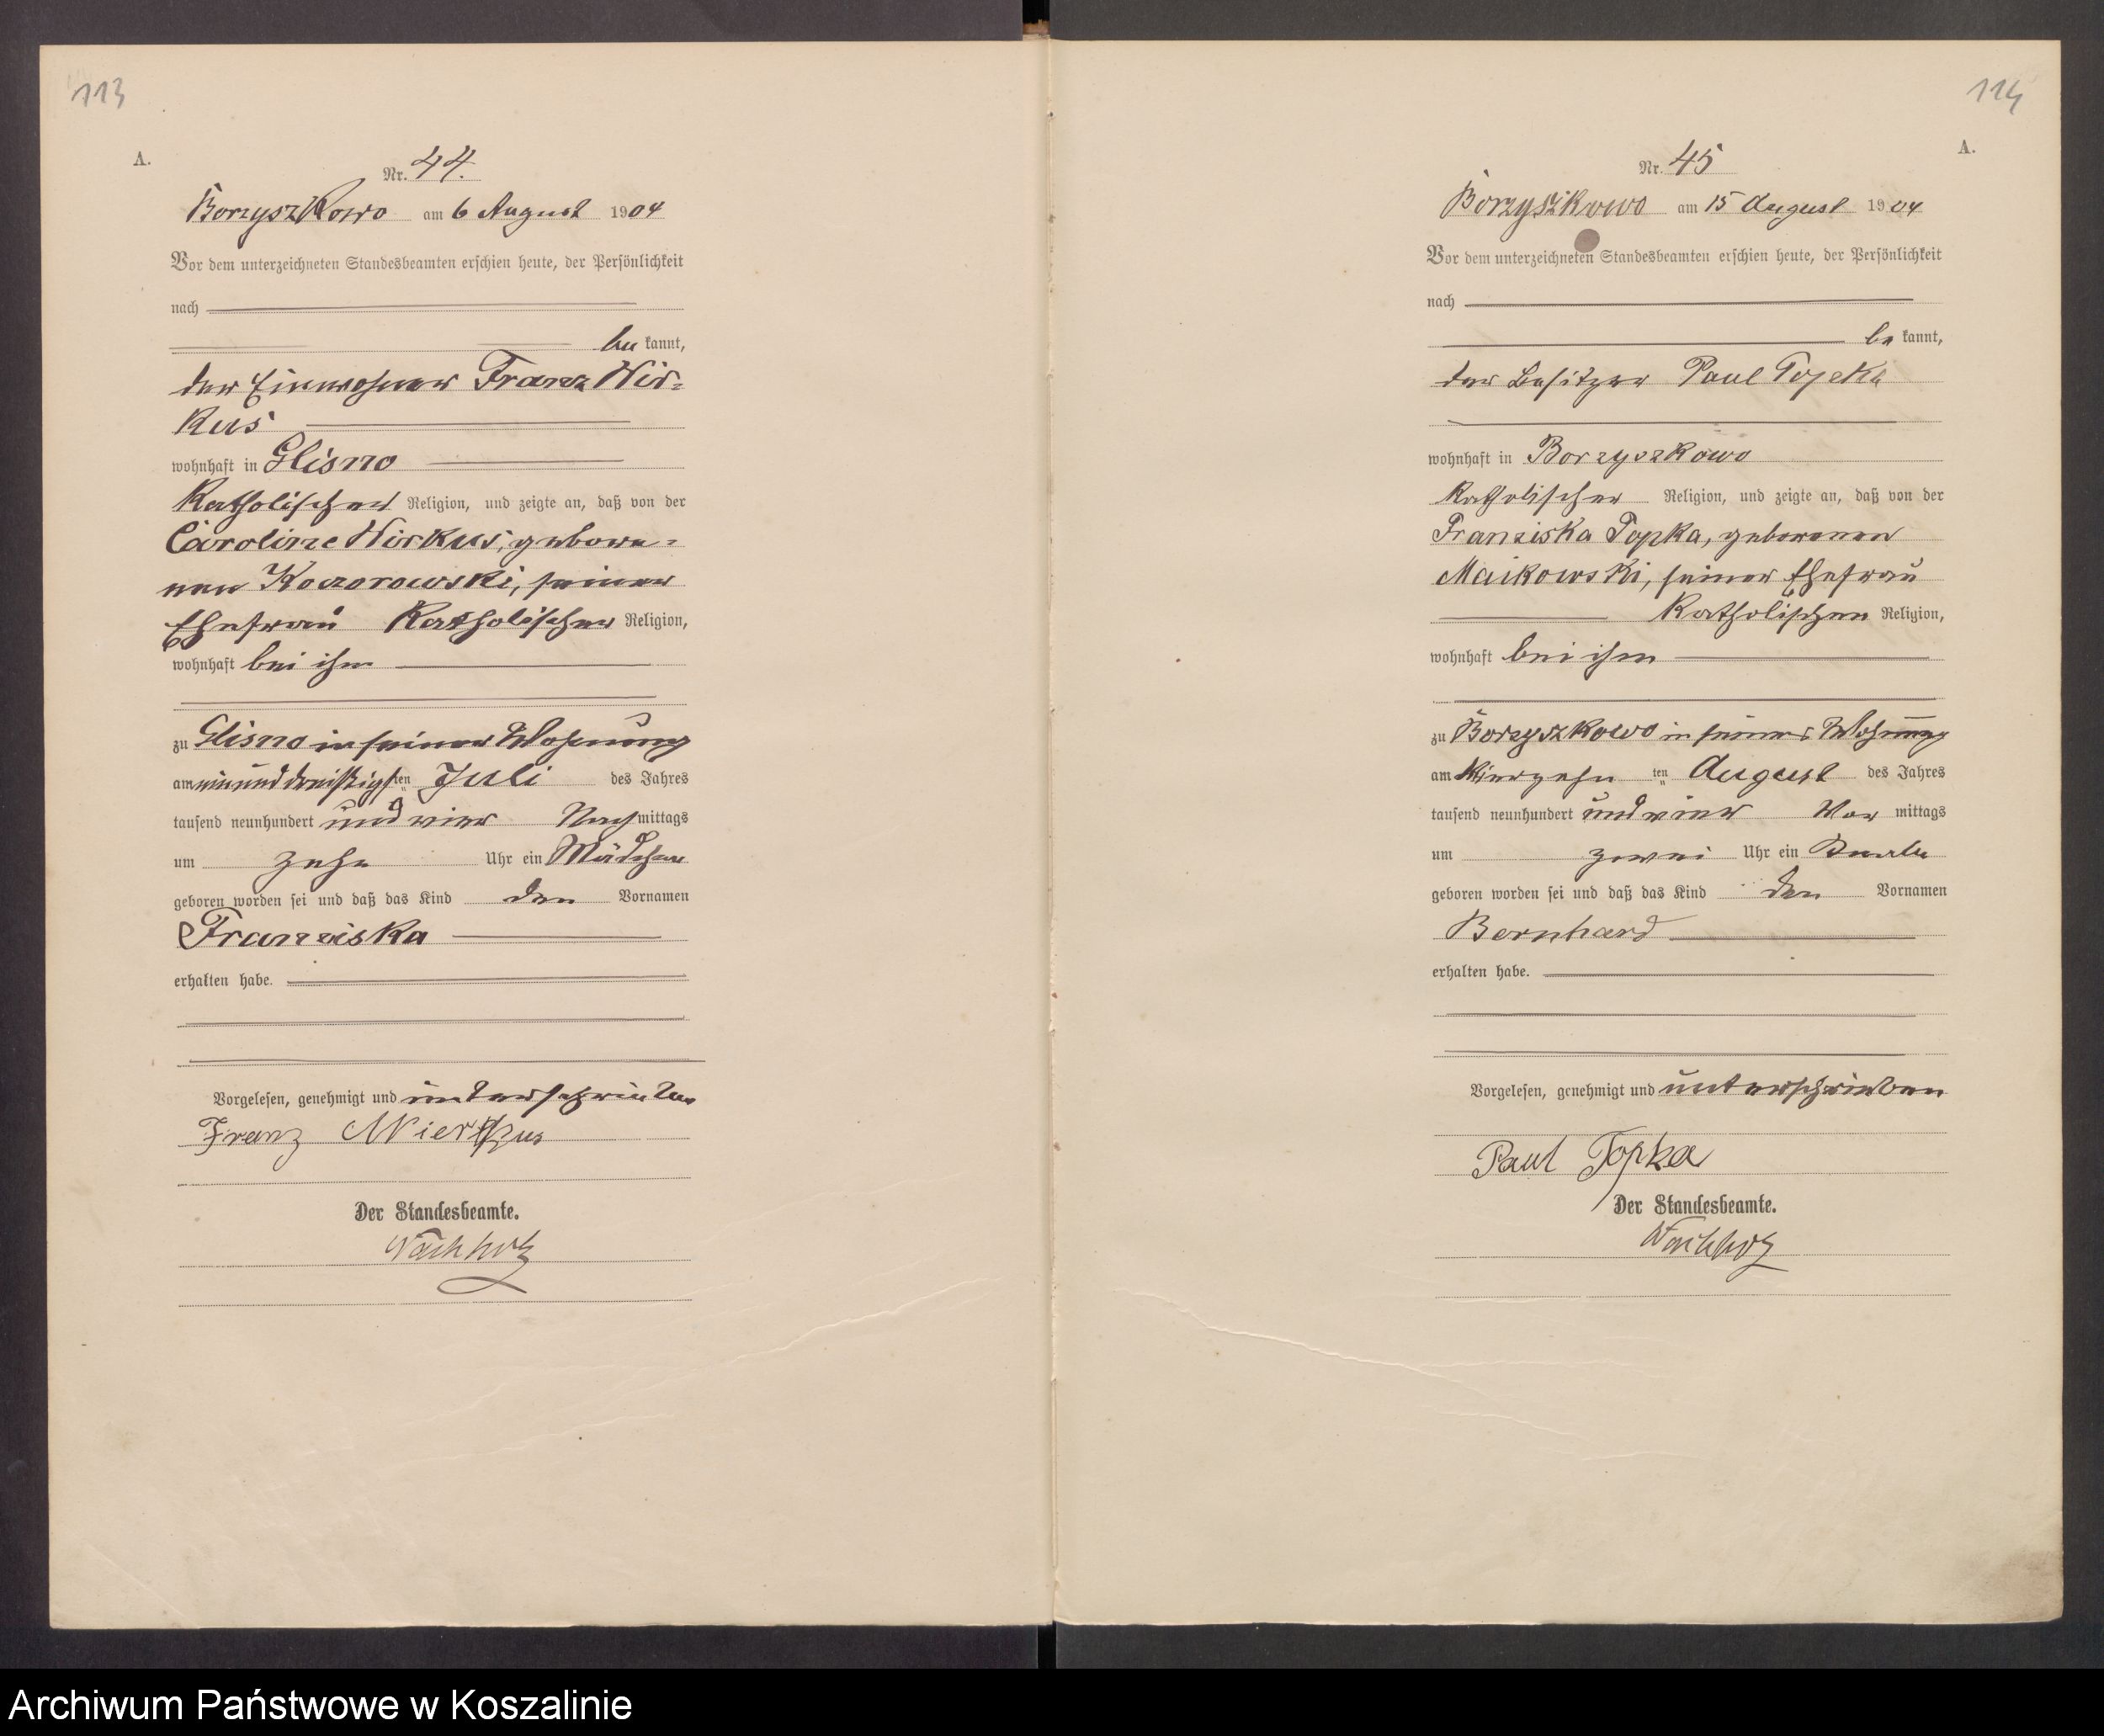 113
A.
Nr. 44.
Borzyszkowo am 6 August 1904
Vor dem unterzeichneten Standesbeamten erschien heute, der Persönlichkeit
nach
be kannt,
der Einwohner Franz Wir=
kus
wohnhaft in Glisno
katholischer Religion, und zeigte an, daß von der
Caroline Wirkus, gebore=
nen seiner
Ehefrau katholischer Religion,
wohnhaft bei ihm
zu Glisno in seiner Wohnung
am einunddreißigsten Juli des Jahres
tausend neunhundert und vier Nachmittags
um zehn Uhr ein Mädchen
geboren worden sei und daß das Kind den Vornamen
Franziska
erhalten habe.
Vorgelesen, genehmigt und unterschrieben
Franz
Der Standesbeamte.
Wachholz
114
A.
Nr. 45
Borzyszkowo am 15 August 1904
Vor dem unterzeichneten Standesbeamten erschien heute, der Persönlichkeit
nach
be kannt,
der Besitzer Paul
wohnhaft in Borzyszkowo
katholischer Religion, und zeigte an, daß von der
Franziska Topka, geborenen
seiner Ehefrau
katholischen Religion,
wohnhaft bei ihm
zu Borzyszkowo in seiner Wohnung
am vierzehn ten August des Jahres
tausend neunhundert und vier Vor mittags
um zwei Uhr ein Knabe
geboren worden sei und daß das Kind den Vornamen
Bernhard
erhalten habe.
Vorgelesen, genehmigt und unterschrieben
Paul Topka
Der Standesbeamte.
Wachholz
Archiwum Państwowe w Koszalinie